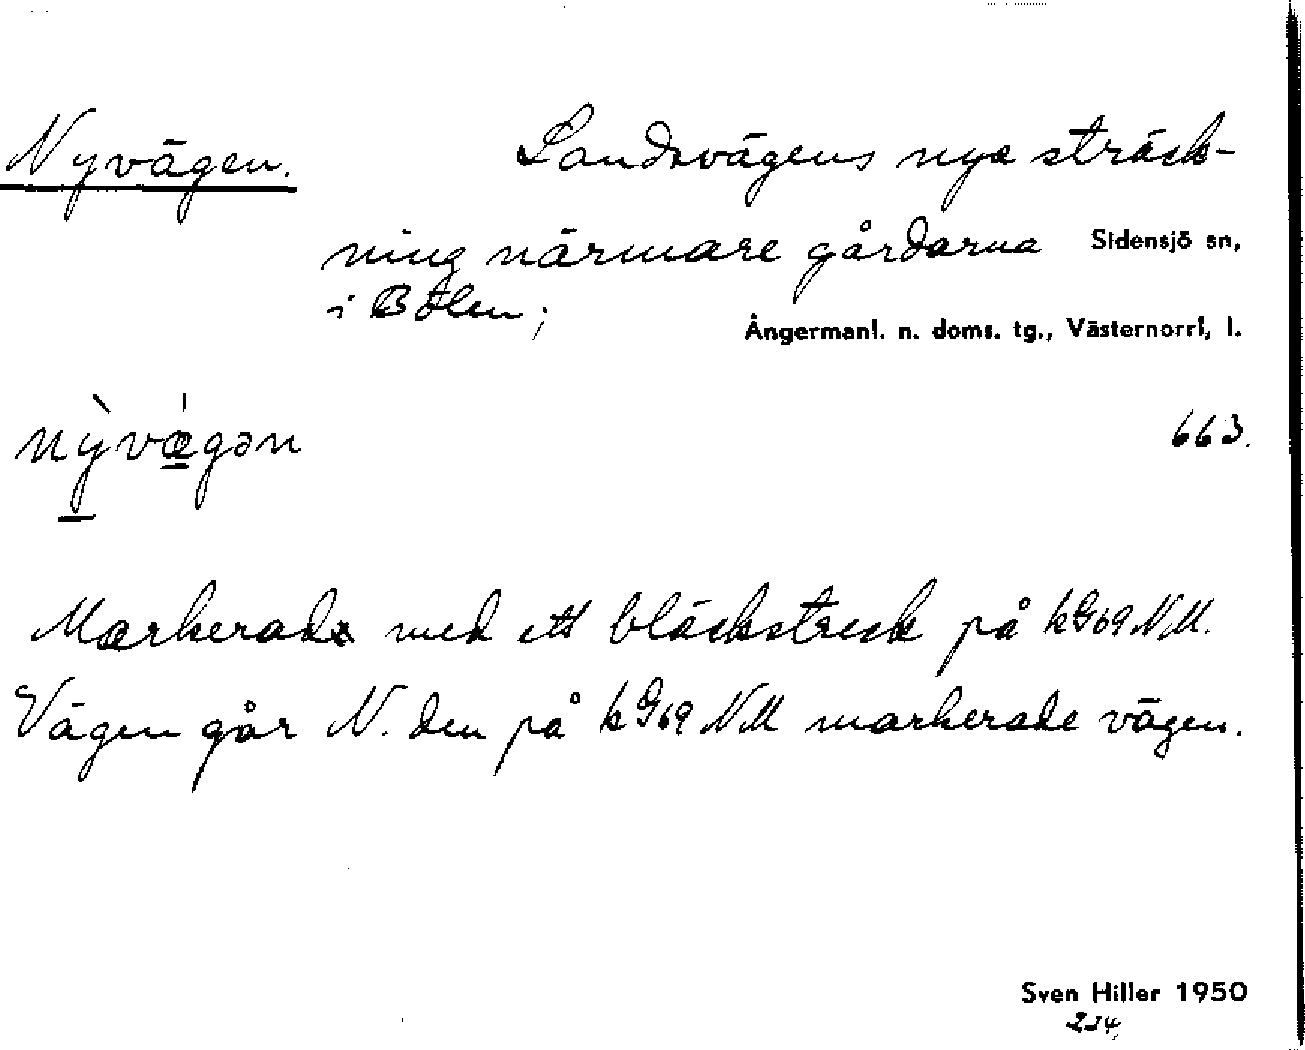 Nyvägen. Landsvägens nya sträck-
ning närmare gårdarna Sidensjö sn,
i Bölen;
Ångermanl. n. doms. tg., Västernorrl. l.
nỳvǽgən 663.
Markerad med ett bläckstreck på kG69 NM.
Vägen går N. den på kG69 NM markerade vägen.
Sven Hiller 1950
234